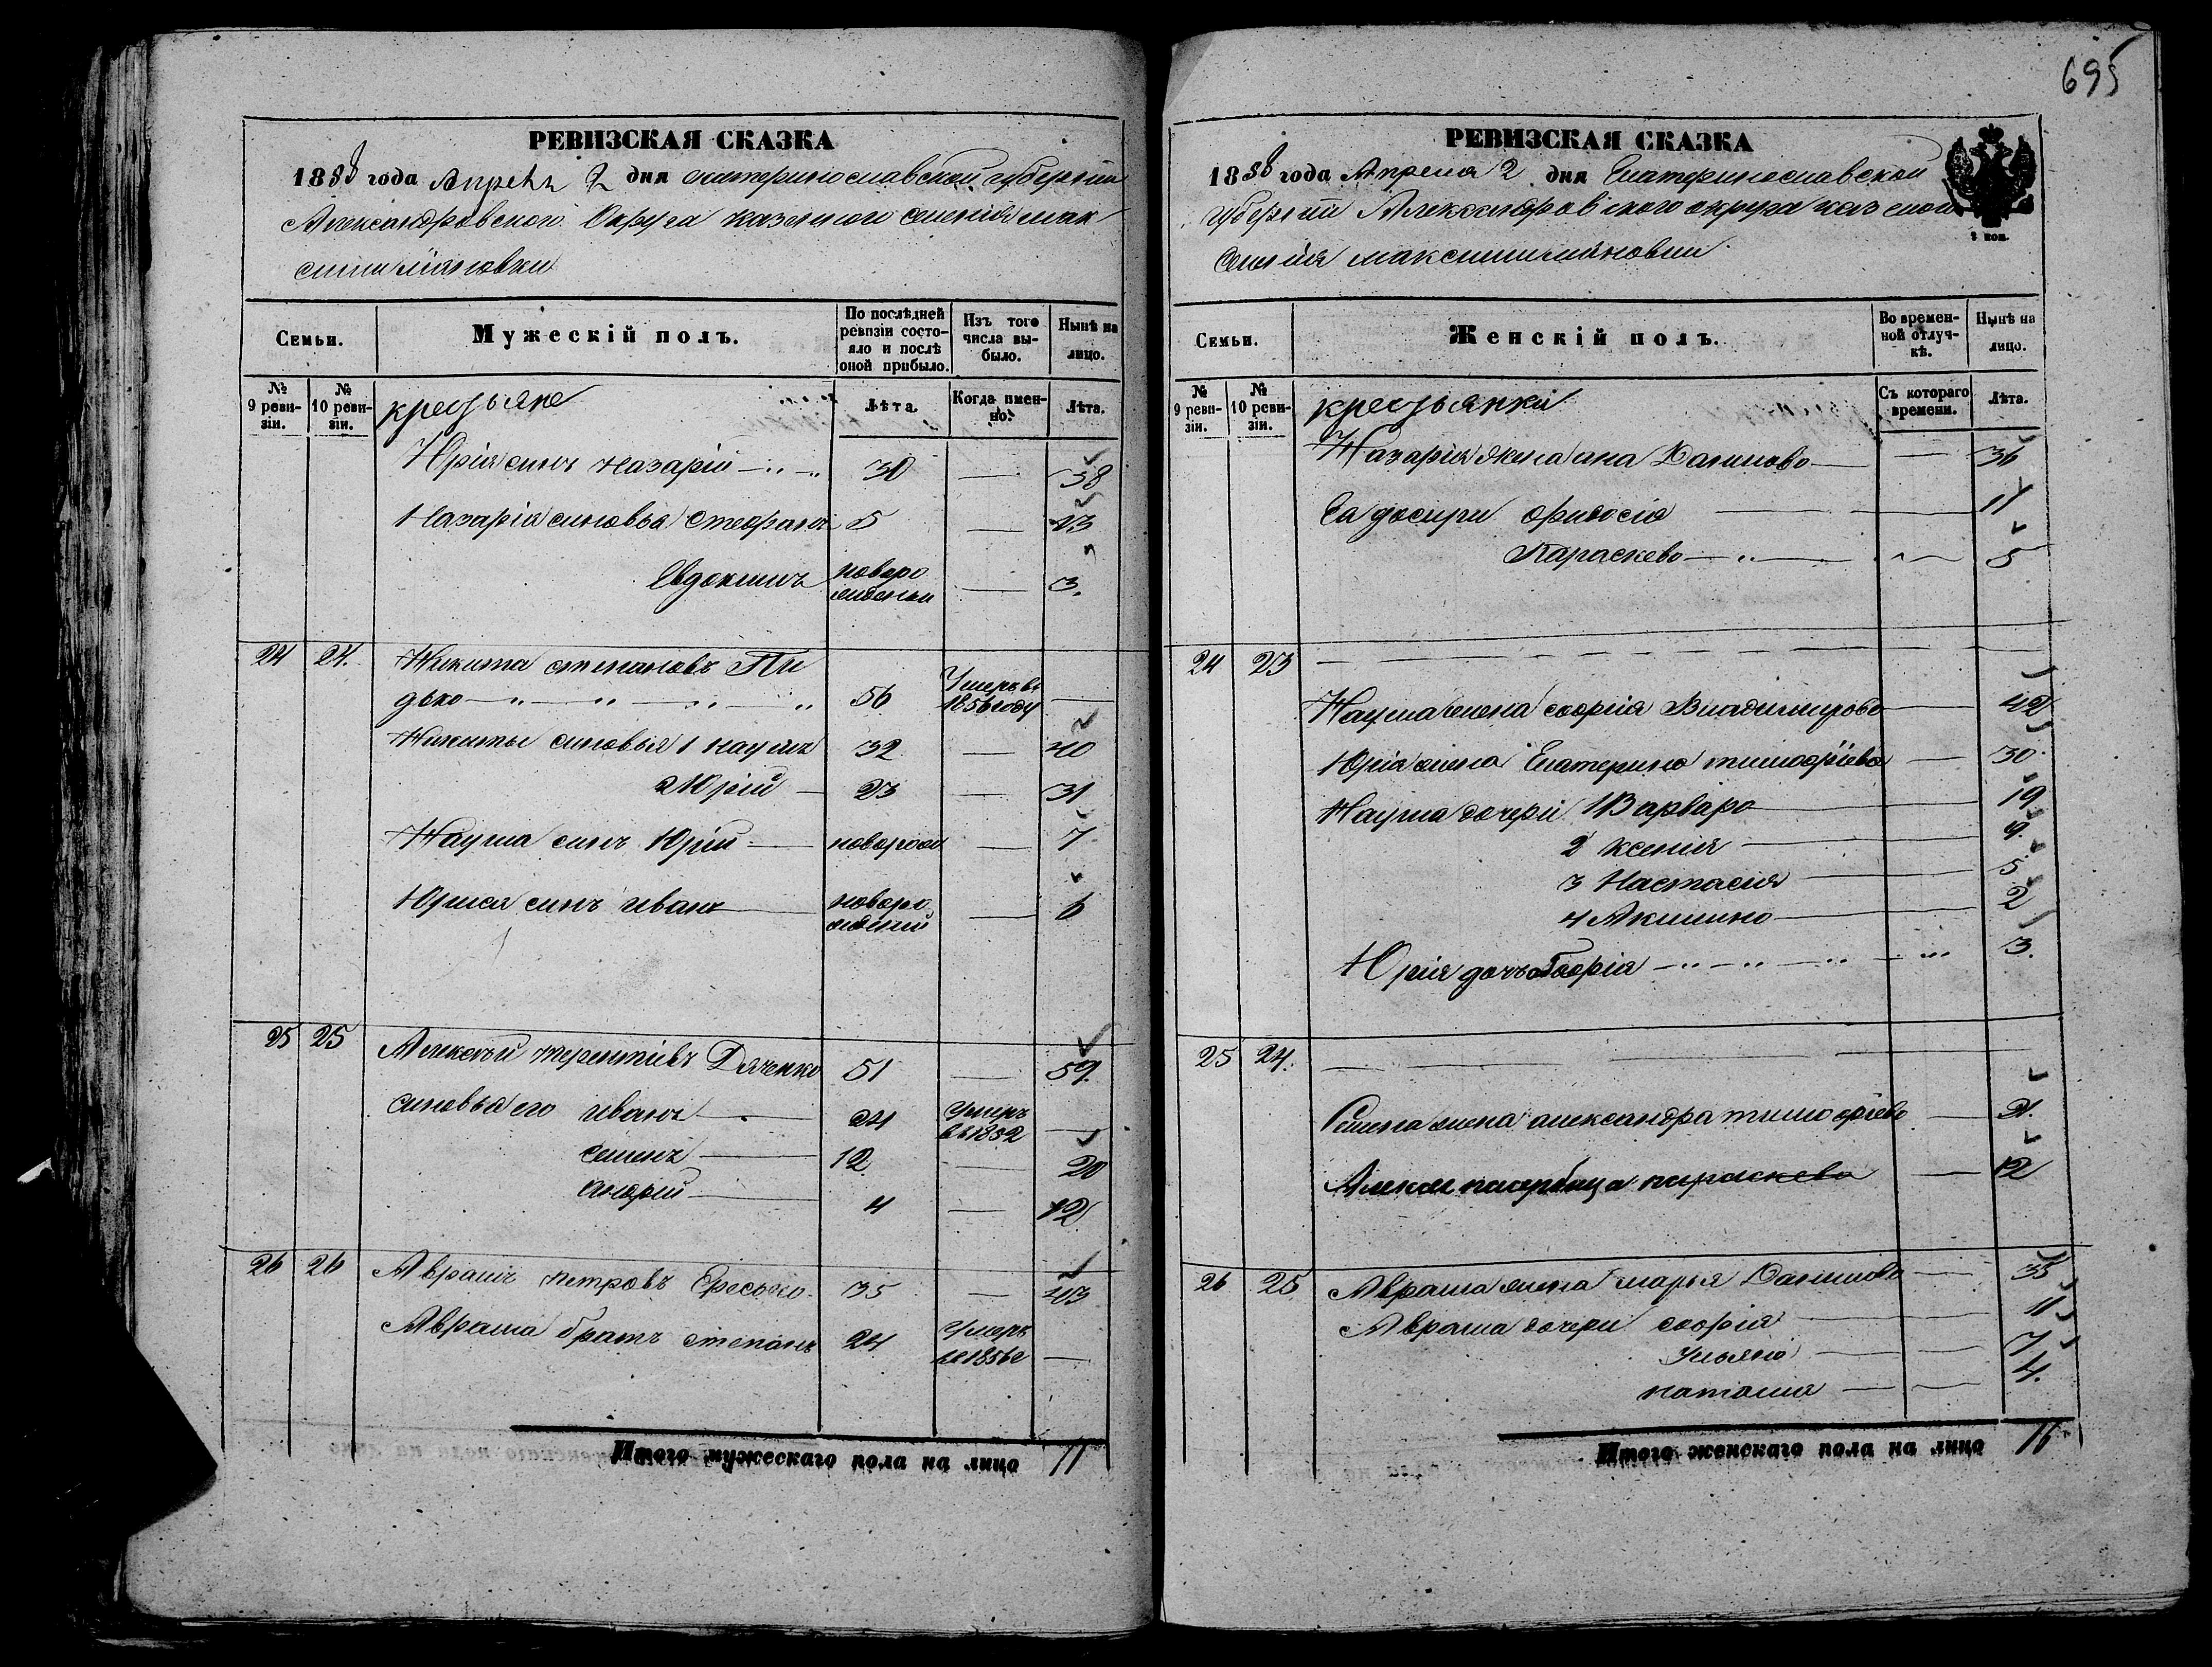 695
РЕВИЗСКАЯ СКАЗКА
1858 года Апреля 2 дня екатеринославской губернии
Александровского Округа казенного имения мак
симилияновки
Семьи.
Мужескій полъ.
По послѣдней ревизіи состояло и послѣ оной прибыло.
Изъ того числа выбыло.
Нынѣ на лицо.
№ 9 ревизіи.
№ 10 ревизіи.
крестьяне
Лѣта.
Когда именно.
Лѣта.
Юрія синъ Назарій 30 — 38
Назарія синовья Стефанъ 5 — 13
Евдокимъ новорожденый — 3.
24 24. Никита степановъ
дько 56 Умеръ въ 1856 году —
Никиты синовья 1 наумъ 32 — 40
2 Юрій — 23 — 31
Наума синъ Юрій — — 7
Юрія синъ иванъ — новорожденый — 6
25 25 Алексѣй терентіевъ Дяченко 51 — 59.
синовья его иванъ — 24 Умеръ въ 1852 —
семенъ — 12 — 20
андрій — 4 — 12
26 26 Аврамъ петровъ Ересько 35 — 43
Аврама братъ степанъ 24 Умеръ въ 1856 —
Итого мужескаго пола на лицо 11
РЕВИЗСКАЯ СКАЗКА
1858 года Апреля 2 дня Екатеринославской
губернии Александровского округа казеного
имѣния максимилияновки
2 коп.
Семьи.
Женскій полъ.
Во временной отлучкѣ.
Нынѣ на лицо.
№ 9 ревизіи.
№ 10 ревизіи.
крестьянки
Съ котораго времени.
Лѣта.
Назарія жена ана Данилова — — 36
Ея дочери — 11
Параскево — 5
24 23 —
Наума жена софия Владимирова — 42
Юрія жена Екатерина тимофіева — 30.
Наума дочери 1 Варвара — 19
2 ксения — 9.
3 Настасия — 5
4 Акилина — 2
Юрія дочь софія — 3.
25 24. —
Семена жена александра тимофіева — 21.
Алексея параскева — 12
26 25 Аврама жена марья Данилова — 35
Аврама дочери софія — 11
Ульяна — 7
наталия — 4.
Итого женскаго пола на лицо 16